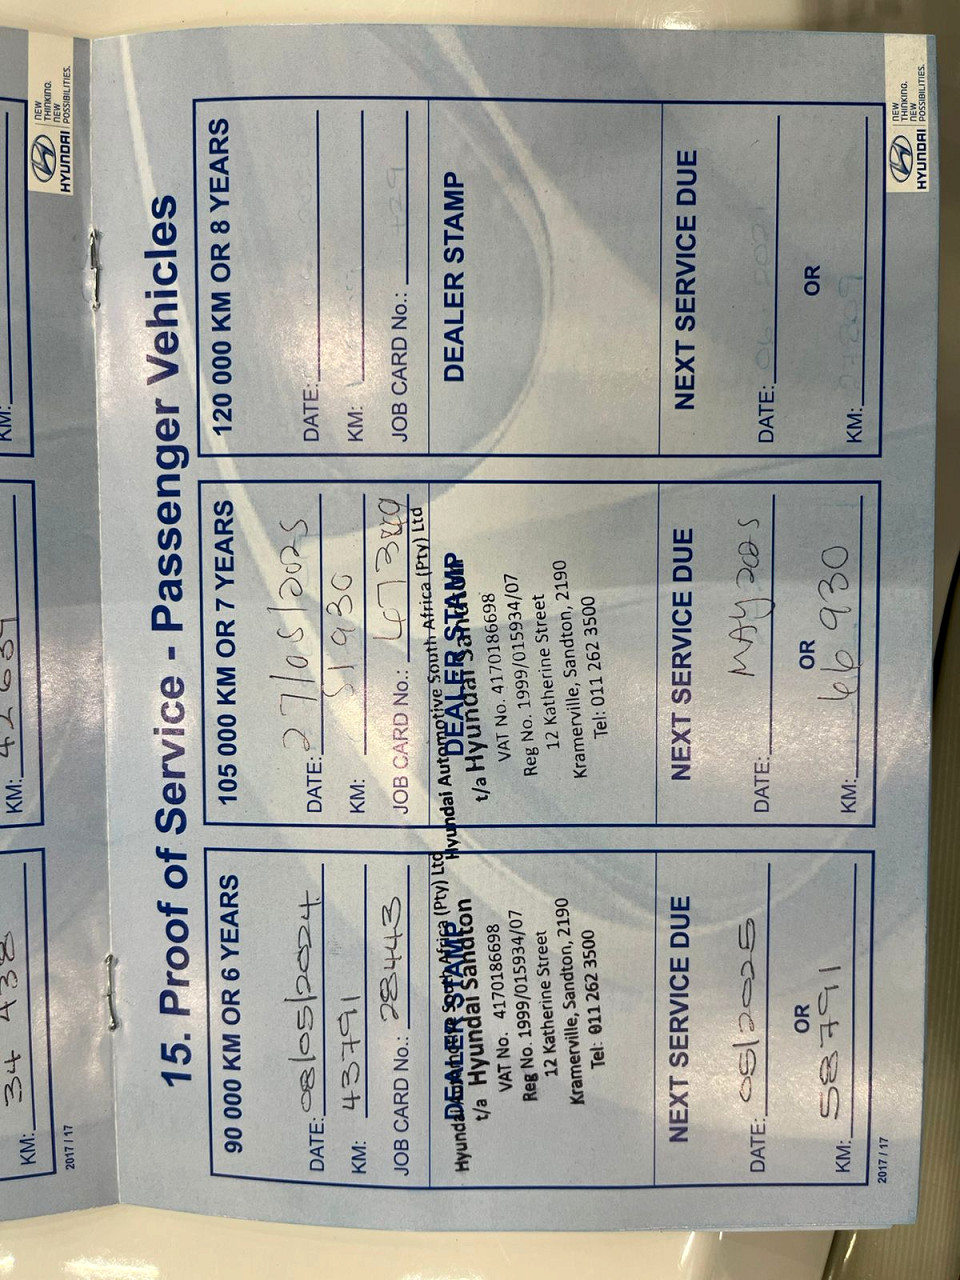 15. Proof of Service - Passenger Vehicles
90 000 KM OR 6 YEARS
DATE: 08/05/2024
KM: 43791
JOB CARD No.: 28443
DEALER STAMP
Hyundai Automotive South Africa (Pty) Ltd
t/a Hyundai Sandton
VAT No. 4170186698
Reg No. 1999/015934/07
12 Katherine Street
Kramerville, Sandton, 2190
Tel: 011 262 3500
NEXT SERVICE DUE
DATE: 05/2025
OR
KM: 58791
105 000 KM OR 7 YEARS
DATE: 27/05/2025
KM: 51930
JOB CARD No.:
DEALER STAMP
Hyundai Automotive South Africa (Pty) Ltd
t/a Hyundai Sandton
VAT No. 4170186698
Reg No. 1999/015934/07
12 Katherine Street
Kramerville, Sandton, 2190
Tel: 011 262 3500
NEXT SERVICE DUE
DATE: MAY
OR
KM: 66930
120 000 KM OR 8 YEARS
DATE:
KM:
JOB CARD No.:
DEALER STAMP
NEXT SERVICE DUE
DATE:
OR
KM:
2017 / 17
HYUNDAI
NEW
THINKING.
NEW
POSSIBILITIES.
KM: 34 438
KM:
KM:
2017 / 17
HYUNDAI
NEW
THINKING.
NEW
POSSIBILITIES.